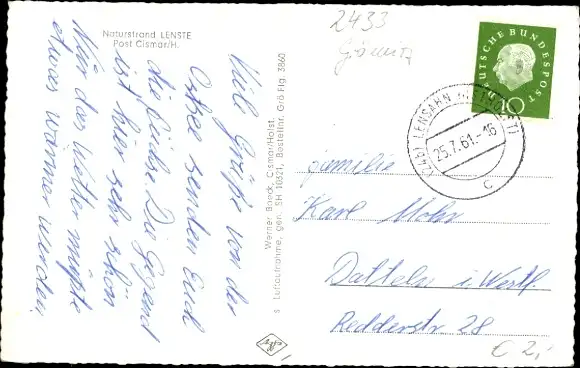 Naturstrand LENSTE
Post Cismar/H.
Viele Grüße von der
Ostsee senden Euch
die
Die Gegend
ist hier sehr schön
Nur das Wetter müßte
etwas wärmer werden
Werner Baeck, Cismar/Holst.
s Luftaufnahme, gen. SH 10621, Bestellnr. Grö Flg. 3860
Agfa
2433
Grömitz
DEUTSCHE BUNDESPOST
10
(24b) LENSAHN (HOLST)
25.7.61.-16
c
Familie
Karl Mohr
Datteln i. Westf.
Redderstr 28
€ 2,-